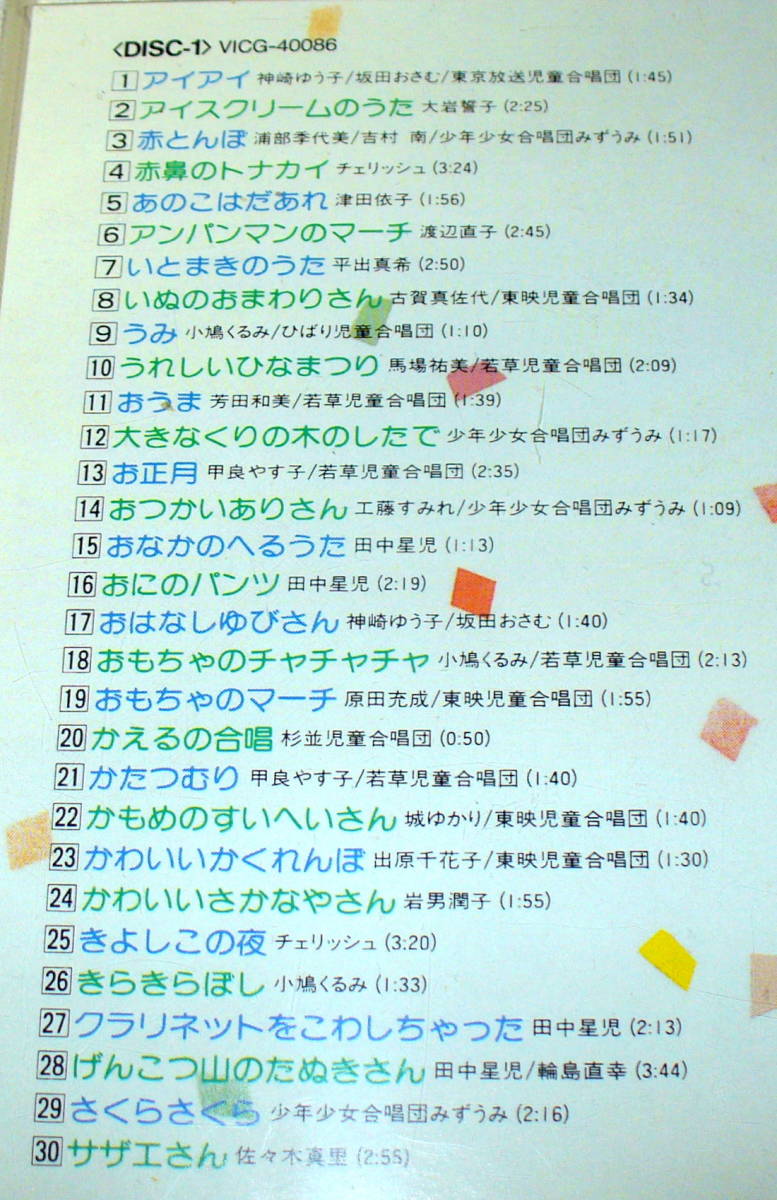 〈DISC-1〉 VICG-40086
1 アイアイ 神崎ゆう子/坂田おさむ/東京放送児童合唱団 (1:45)
2 アイスクリームのうた 大岩誓子 (2:25)
3 赤とんぼ 浦部季代美/吉村 南/少年少女合唱団みずうみ (1:51)
4 赤鼻のトナカイ チェリッシュ (3:24)
5 あのこはだあれ 津田依子 (1:56)
6 アンパンマンのマーチ 渡辺直子 (2:45)
7 いとまきのうた 平出真希 (2:50)
8 いぬのおまわりさん 古賀真佐代/東映児童合唱団 (1:34)
9 うみ 小鳩くるみ/ひばり児童合唱団 (1:10)
10 うれしいひなまつり 馬場祐美/若草児童合唱団 (2:09)
11 おうま 芳田和美/若草児童合唱団 (1:39)
12 大きなくりの木のしたで 少年少女合唱団みずうみ (1:17)
13 お正月 甲良やす子/若草児童合唱団 (2:35)
14 おつかいありさん 工藤すみれ/少年少女合唱団みずうみ (1:09)
15 おなかのへるうた 田中星児 (1:13)
16 おにのパンツ 田中星児 (2:19)
17 おはなしゆびさん 神崎ゆう子/坂田おさむ (1:40)
18 おもちゃのチャチャチャ 小鳩くるみ/若草児童合唱団 (2:13)
19 おもちゃのマーチ 原田充成/東映児童合唱団 (1:55)
20 かえるの合唱 杉並児童合唱団 (0:50)
21 かたつむり 甲良やす子/若草児童合唱団 (1:40)
22 かもめのすいへいさん 城ゆかり/東映児童合唱団 (1:40)
23 かわいいかくれんぼ 出原千花子/東映児童合唱団 (1:30)
24 かわいいさかなやさん 岩男潤子 (1:55)
25 きよしこの夜 チェリッシュ (3:20)
26 きらきらぼし 小鳩くるみ (1:33)
27 クラリネットをこわしちゃった 田中星児 (2:13)
28 げんこつ山のたぬきさん 田中星児/輪島直幸 (3:44)
29 さくらさくら 少年少女合唱団みずうみ (2:16)
30 サザエさん 佐々木真里 (2:55)